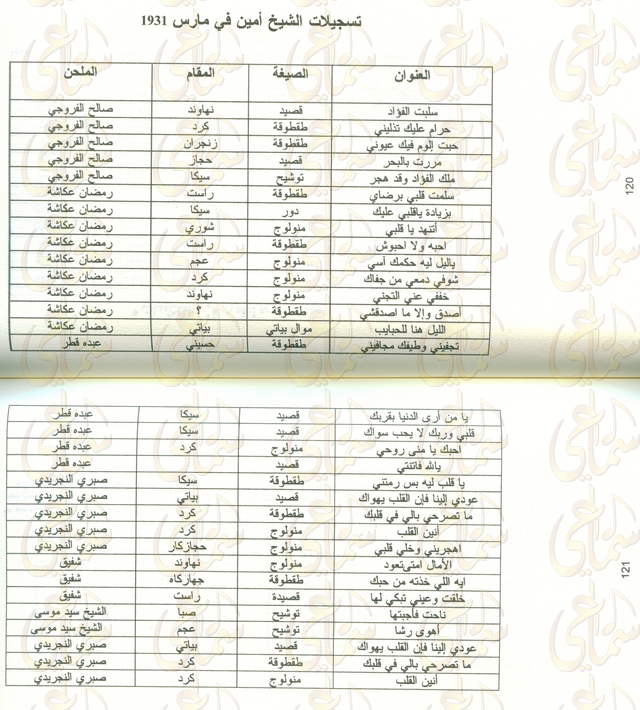 تسجيلات الشيخ أمين في مارس 1931
العنوان الصيغة المقام الملحن
سلبت الفؤاد قصيد نهاوند صالح الفروجي
حرام عليك تذليني طقطوقة كرد صالح الفروجي
حبت إلوم فيك عيوني طقطوقة زنجران صالح الفروجي
مررت بالبحر قصيد حجاز صالح الفروجي
ملك الفؤاد وقد هجر توشيح سيكا صالح الفروجي
سلمت قلبي برضاي طقطوقة راست رمضان عكاشة
بزيادة ياقلبي عليك دور سيكا رمضان عكاشة
أتنهد يا قلبي منولوج شوري رمضان عكاشة
احبه ولا احبوش طقطوقة راست رمضان عكاشة
ياليل ليه حكمك آسي منولوج عجم رمضان عكاشة
شوفي دمعي من جفاك منولوج كرد رمضان عكاشة
خففي عني التجني منولوج نهاوند رمضان عكاشة
أصدق وإلا ما اصدقشي طقطوقة ؟ رمضان عكاشة
الليل هنا للحبايب موال بياتي بياتي رمضان عكاشة
تجفيني وطيفك مجافيني طقطوقة حسيني عبده قطر
120
يا من أرى الدنيا بقربك قصيد سيكا عبده قطر
قلبي وربك لا يحب سواك قصيد سيكا عبده قطر
احبك يا منى روحي منولوج كرد عبده قطر
يالله فاتنتي قصيد عبده قطر
يا قلب ليه بس رمتني طقطوقة سيكا صبري النجريدي
عودي إلينا فإن القلب يهواك قصيد بياتي صبري النجريدي
ما تصرحي بالي في قلبك طقطوقة كرد صبري النجريدي
أنين القلب منولوج كرد صبري النجريدي
اهجريني وخلي قلبي منولوج حجازكار صبري النجريدي
الأمال امتى تعود منولوج نهاوند شفيق
ايه اللي خذته من حبك طقطوقة جهاركاه شفيق
خلقت وعيني تبكي لها قصيدة راست شفيق
ناحت فأجبتها توشيح صبا الشيخ سيد موسى
أهوى رشا توشيح عجم الشيخ سيد موسى
عودي إلينا فإن القلب يهواك قصيد بياتي صبري النجريدي
ما تصرحي بالي في قلبك طقطوقة كرد صبري النجريدي
أنين القلب منولوج كرد صبري النجريدي
121